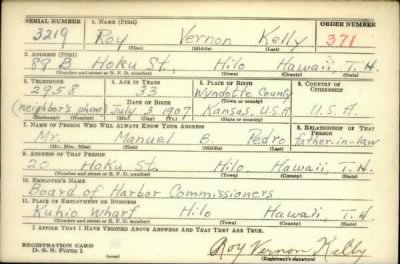 SERIAL NUMBER 1. NAME (Print) ORDER NUMBER
3219 Roy Vernon Kelly 371
(First) (Middle) (Last)
2. ADDRESS (Print)
89 B Hoku St, Hilo Hawaii, T.H.
(Number and street or R. F. D. number) (Town) (County) (State)
3. TELEPHONE 4. AGE IN YEARS 5. PLACE OF BIRTH 6. COUNTRY OF CITIZENSHIP
2958 33 Wyndotte County
DATE OF BIRTH (Town or county)
(neighbor's phone) July 3 1907 Kansas, U.S.A U.S.A.
(Exchange) (Number) (Mo.) (Day) (Yr.) (State or country)
7. NAME OF PERSON WHO WILL ALWAYS KNOW YOUR ADDRESS 8. RELATIONSHIP OF THAT PERSON
Mr. Manuel B. Pedro father-in-law
(Mr., Mrs., Miss) (First) (Middle) (Last)
9. ADDRESS OF THAT PERSON
20 Hoku St. Hilo, Hawaii, T.H.
(Number and street or R. F. D. number) (Town) (County) (State)
10. EMPLOYER'S NAME
Board of Harbor Commissioners
11. PLACE OF EMPLOYMENT OR BUSINESS
Kuhio Wharf Hilo Hawaii, T.H.
(Number and street or R. F. D. number) (Town) (County) (State)
I AFFIRM THAT I HAVE VERIFIED ABOVE ANSWERS AND THAT THEY ARE TRUE.
REGISTRATION CARD
D. S. S. Form 1 (over) Roy Vernon Kelly
(Registrant's signature)